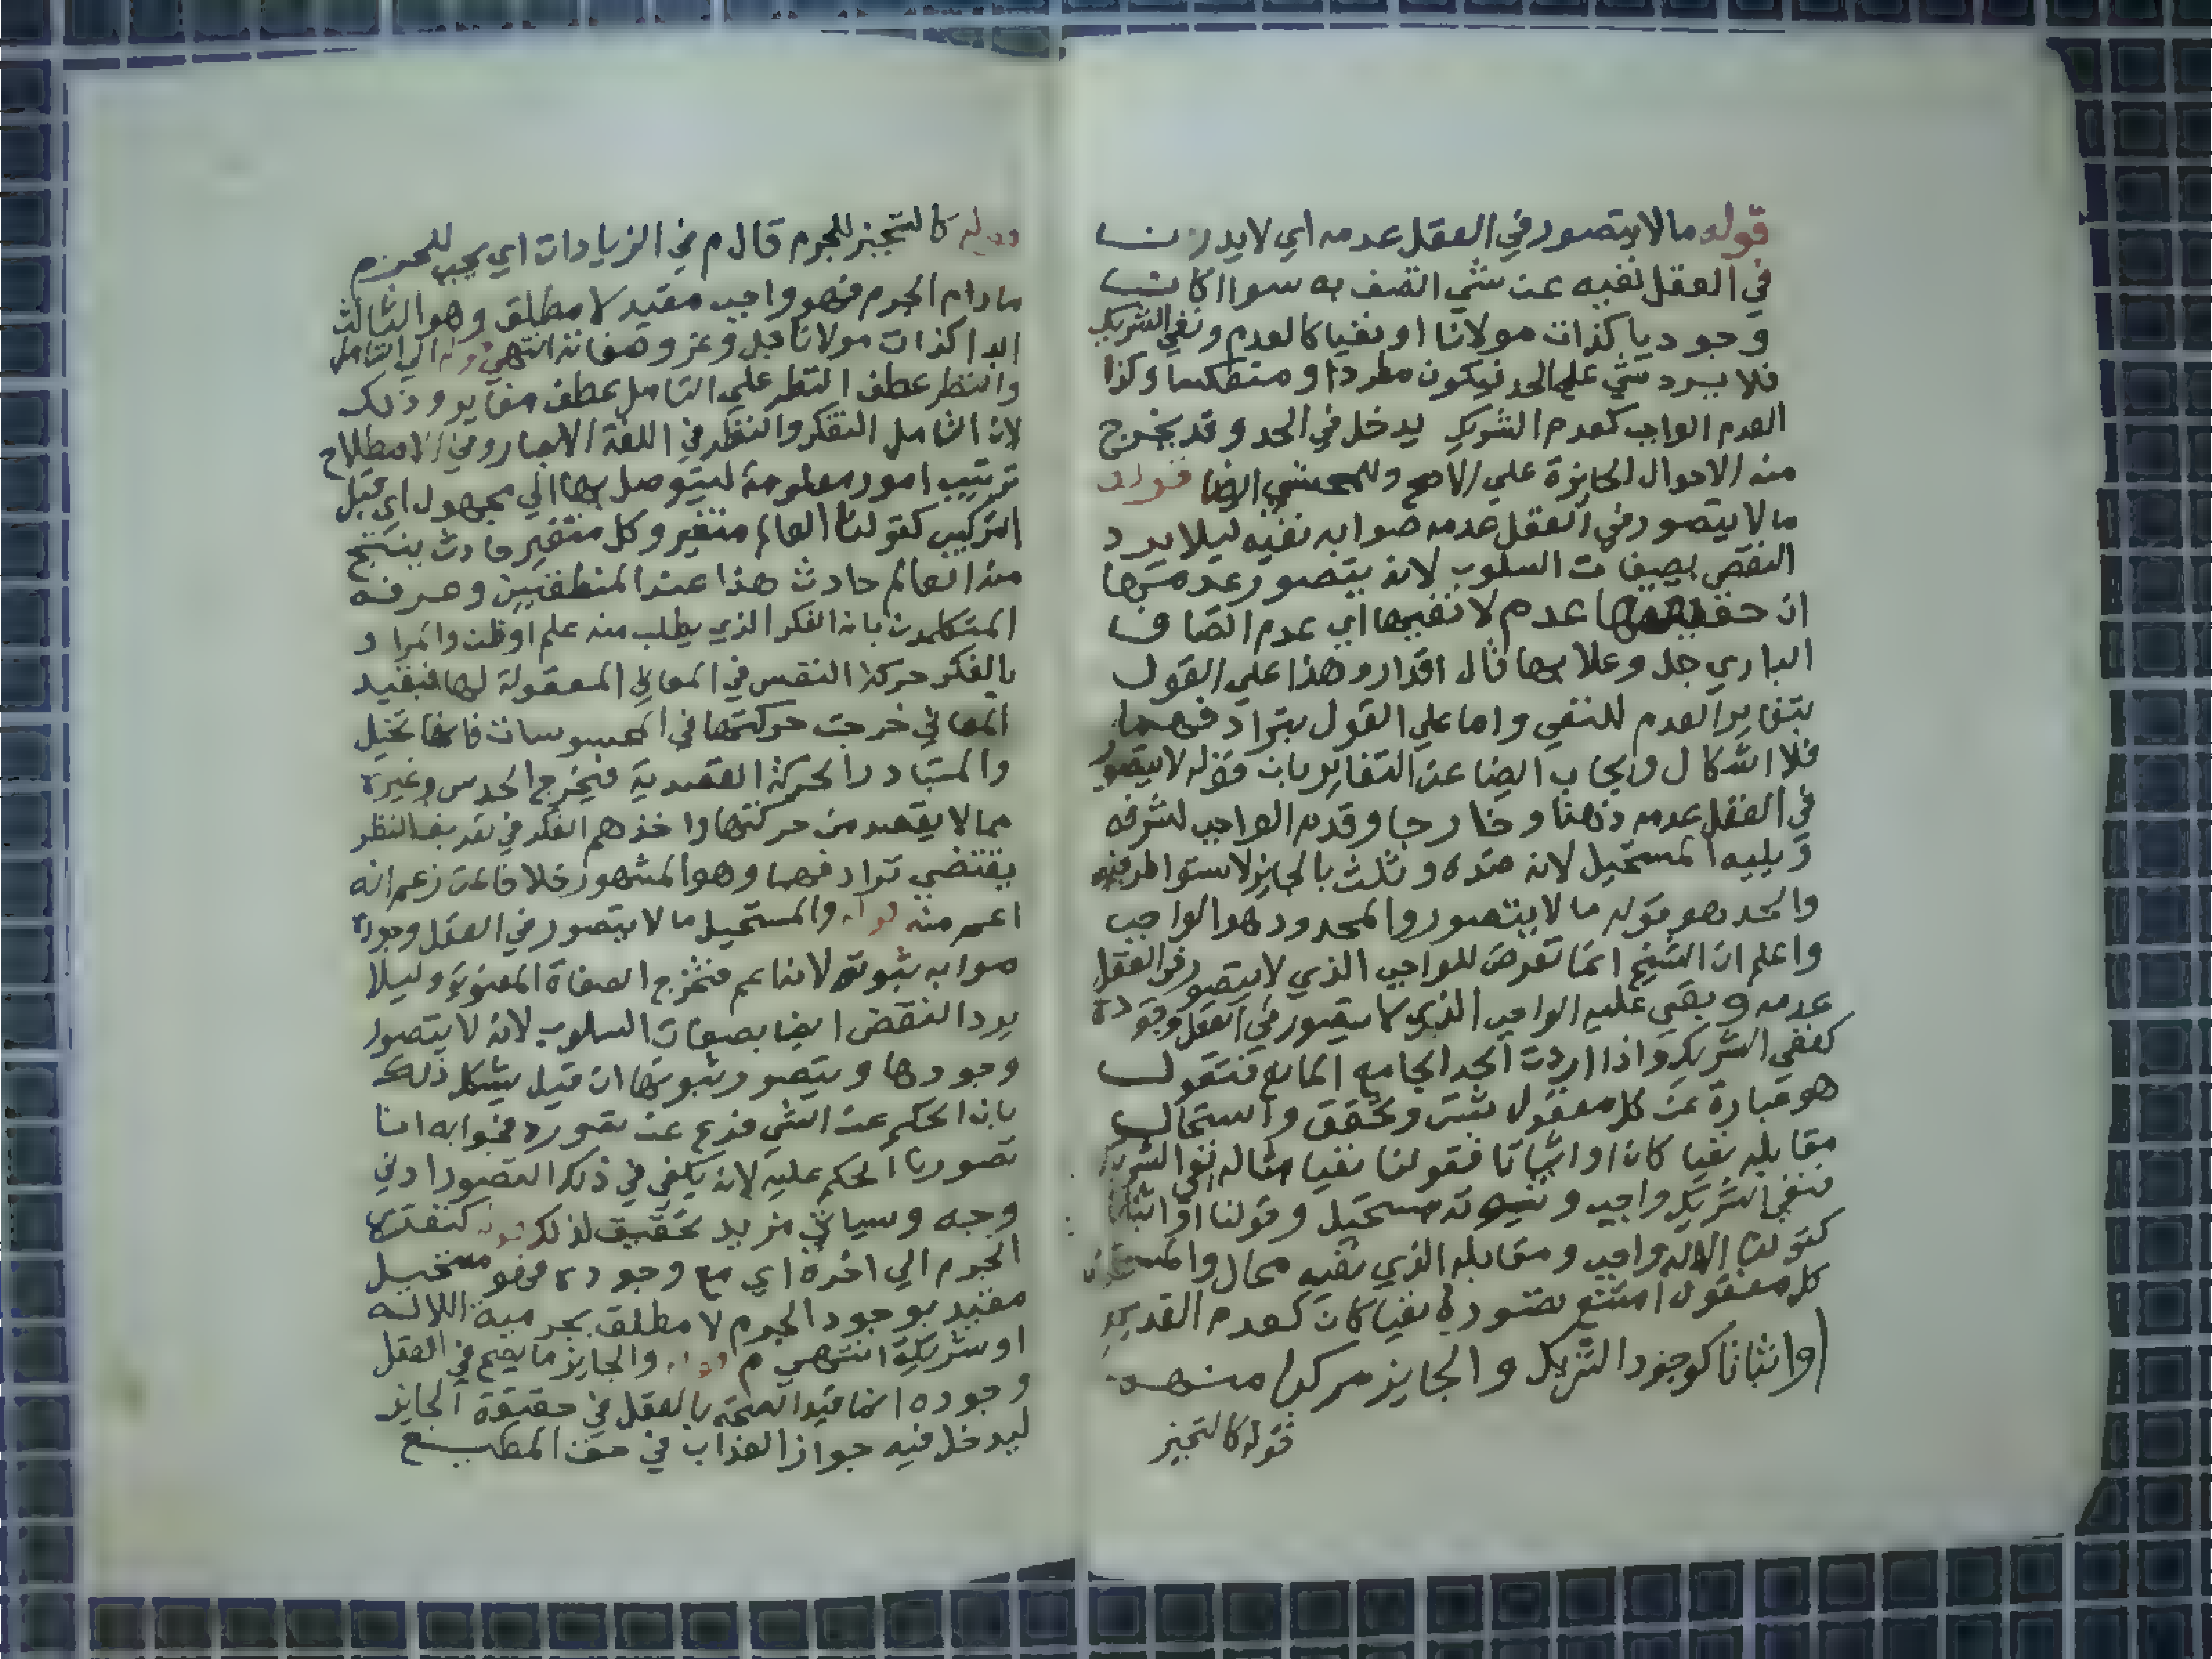 قوله ما لا يتصور في العقل عدمه اي لا يدرك
في العقل نفيه عن شي اتصف به سوا كان
وجوديا كذات مولانا او نفيا كالعدم ونفي الشريك
فلا يرد شي على الحد فيكون مطردا ومنعكسا وكذا
العدم الواجب كعدم الشريك يدخل في الحد وقد يخرج
منه الاحوال الجايزة علي الاصح وللمحشي ايضا قوله
ما لا يتصور في العقل عدمه صوابه نفيه ليلا يرد
النقض بصفات السلوب لانه يتصور عدمها
ان عدم لا نفيها اي عدم اتصاف
الباري جل وعلا بها قال اقدار وهذا علي القول
بتغاير العدم للنفي واما علي القول بترادفهما
فلا اشكال ويجاب ايضا عن التغاير بان قوله لا يتصور
في العقل عدمه ذهنا وخارجا وقدم الواجب لشرفه
ويليه المستحيل لانه ضده وثلث بالجايز لاستوا طرفيه
والحد هو قوله ما لا يتصور والمحدود هو الواجب
واعلم ان الشيخ انما تعرض للواجب الذي لا يتصور في العقل
عدمه وبقي عليه الواجب الذي لا يتصور في العقل وجوده
كنفي الشريك واذا اردت الحد الجامع المانع فتقول
هو عبارة عن كل معقول ثبت وتحقق واستحال
مقابله نفيا كان او اثباتا فقولنا نفيا مثاله نفي الشريك
فنفي الشريك واجب وثبوته مستحيل وقولنا او اثباتا
كقولنا الاله واجب ومقابله الذي نفيه محال والمستحيل
كل معقول امتنع تصوره نفيا كان كعدم القديم
او اثباتا كوجود الشريك والجايز مركب منهما
قوله كالتحيز
قوله كالتحيز للجرم قال م في الزيادات اي يجب للجرم
ما دام الجرم فهو واجب مقيد لا مطلق وهو الثالث
ابدا كذات مولانا جل وعز وصفاته انتهي قوله الي التامل
والنظر عطف النظر علي التامل عطف مغاير وذلك
لان التامل التفكر والنظر في اللغة الابصار وفي الاصطلاح
ترتيب امور معلومة ليتوصل بها الي مجهول اي قبل
التركيب كقولنا العالم متغير وكل متغير حادث ينتج
منه العالم حادث هذا عند المنطقيين وعرفه
المتكلمون بانه الفكر الذي يطلب منه علم او ظن والمراد
بالفكر حركة النفس في المعاني المعقولة لها فبقيد
المعاني خرجت حركتها في المحسوسات فانها تخيل
والمتبادر الحركة القصدية فيخرج الحدس وغيره
مما لا يقصد من حركتها واخذهم الفكر في تعريف النظر
يقتضي ترادفهما وهو المشهور خلافا لمن زعم انه
اعم منه قوله والمستحيل ما لا يتصور في العقل وجوده
صوابه ثبوته لانه اعم فتخرج الصفاة المعنوية وليلا
يرد النقض ايضا بصفات السلوب لانه لا يتصور
وجودها ويتصور ثبوتها ان قيل يشكل ذلك
بان الحكم عن الشي فرع عن تصوره فجوابه انا
تصورنا الحكم عليه لانه يكفي في ذلك التصور ادني
وجه وسياتي مزيد تحقيق لذلك قوله
الجرم الي اخره اي مع وجوده فهو مستحيل
مقيد بوجود الجرم لا مطلق بجرمية الاله
او شريكه انتهي م قوله والجايز ما يصح في العقل
وجوده انما قيد الصحة بالعقل في حقيقة الجايز
ليدخل فيه جواز العذاب في حق المطيع